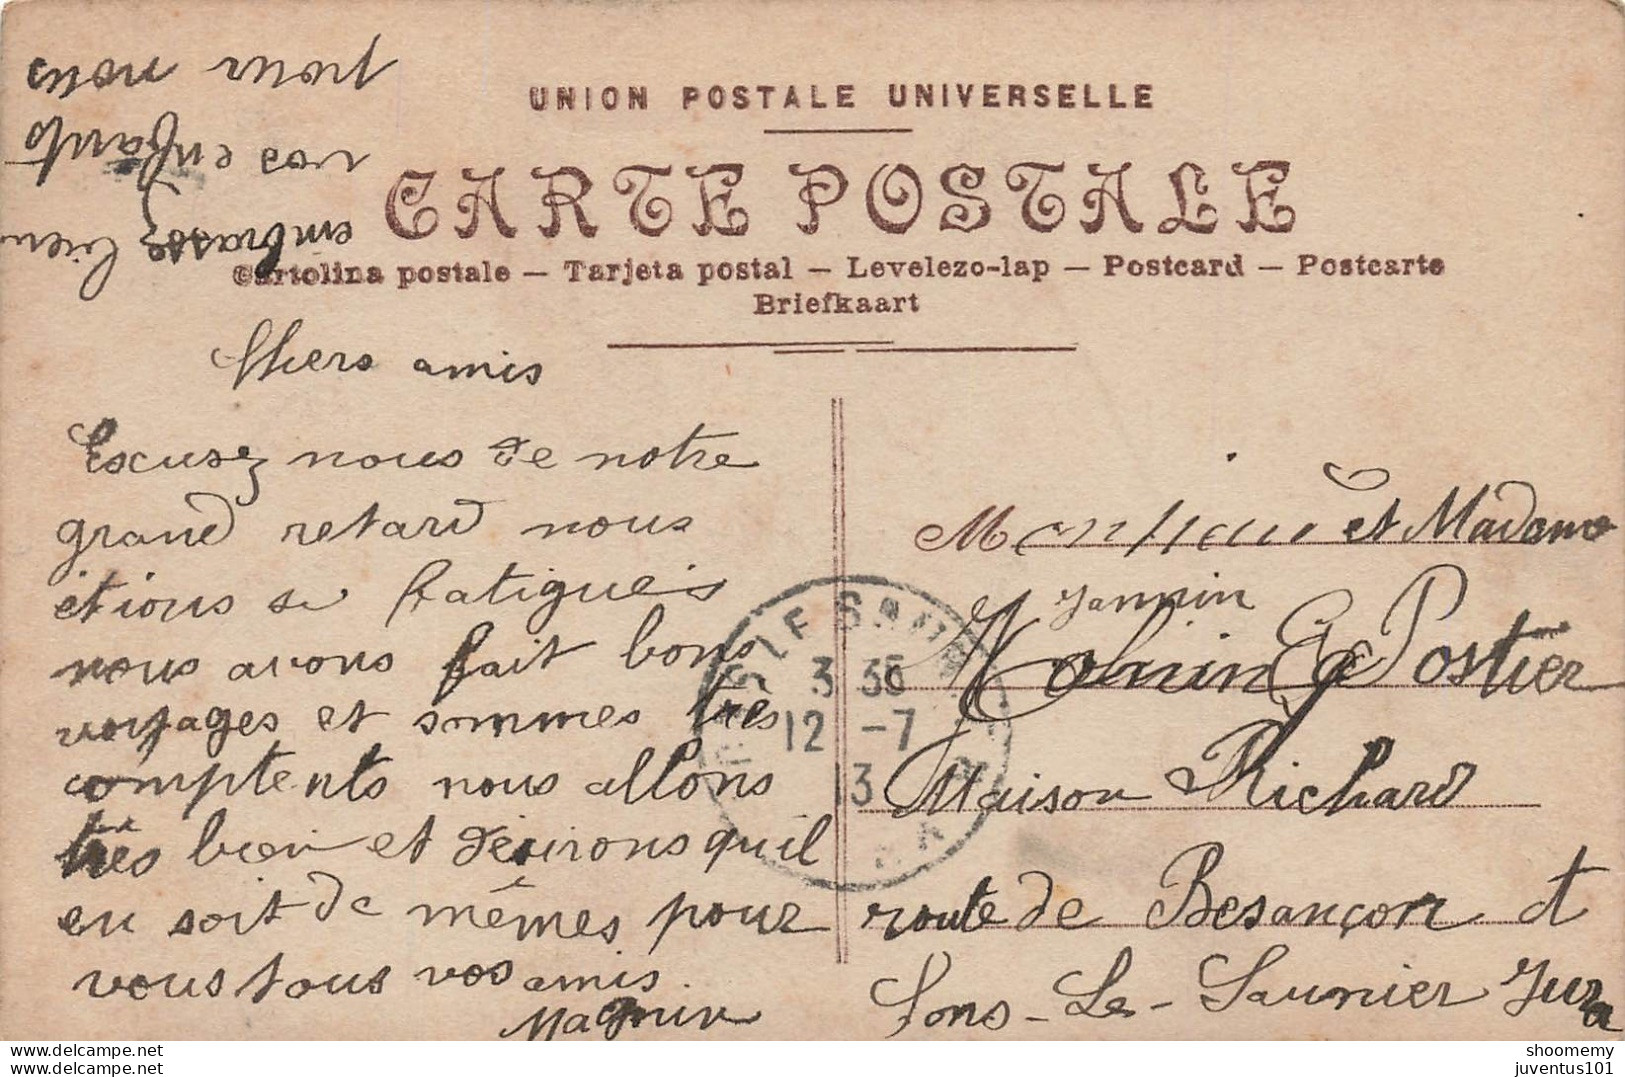 UNION POSTALE UNIVERSELLE
CARTE POSTALE
Cartolina postale — Tarjeta postal — Levelezo-lap — Postcard — Postcarte
Briefkaart
Chers amis
Escusez nous de notre
grand retard nous
étions si fatigués
nous avons fait bons
voyages et sommes très
comptents nous allons
très bien et désirons qu'il
en soit de mêmes pour
vous tous vos amis.
Magnin
embrassez bien
vos enfants
pour nous
Monsieur et Madame
Jannin
Postier
Maison Richard
route de Besançon
Lons-Le-Saunier Jura
3 35
12 -7
13
shoomemy
https://www.delcampe.net
juventus101
https://www.delcampe.net